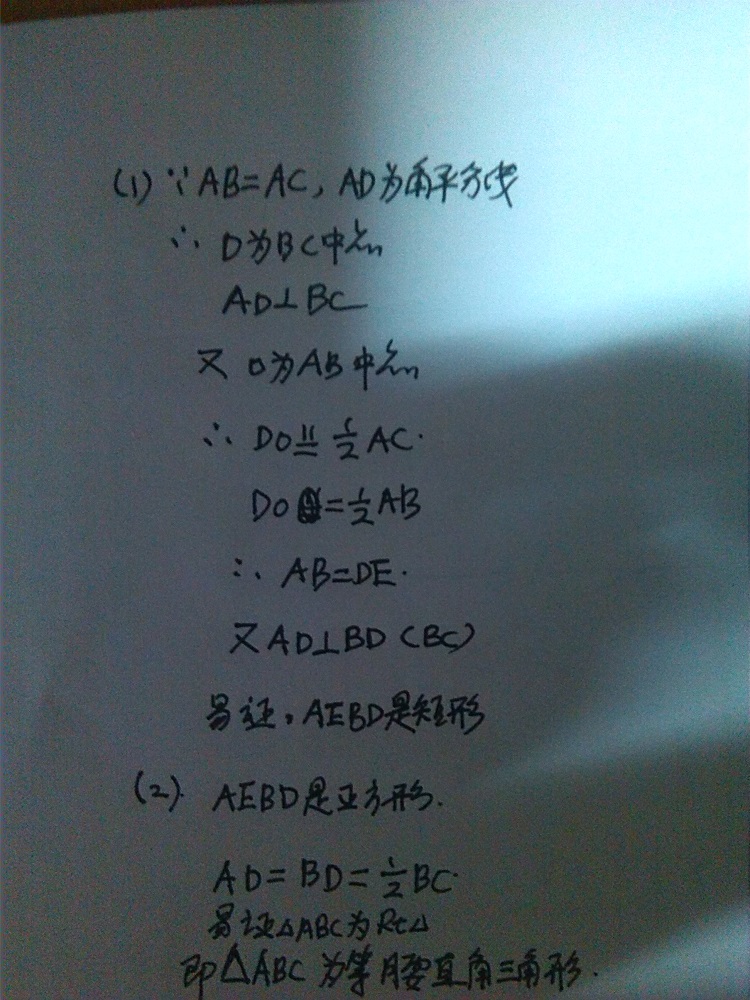 (1) ∵ AB=AC, AD为角平分线
∴ D为BC中点
AD⊥BC
又 O为AB中点
∴ DO∥= 1/2 AC.
DO = 1/2 AB
∴ AB=DE.
又 AD⊥BD (BC)
易证, AEBD是矩形
(2). AEBD是正方形.
AD = BD = 1/2 BC.
易证△ABC为Rt△
即△ABC为等腰直角三角形.